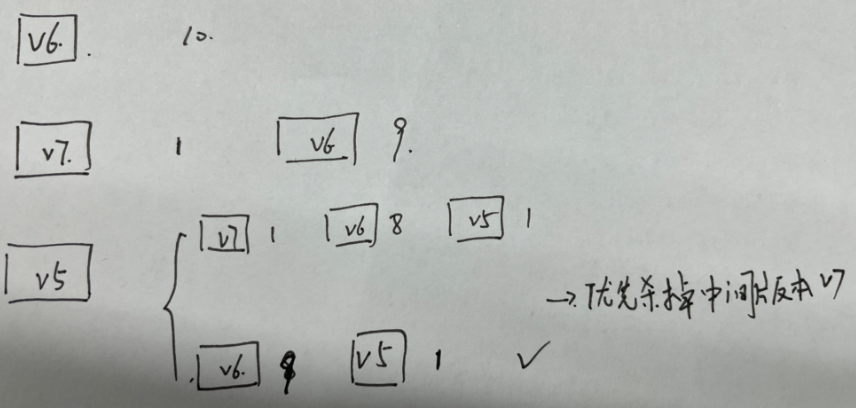 v6. 10.
v7. 1 v6 9.
v7 1 v6 8 v5 1
v5
→ 优先杀掉中间版本v7
v6. 9 v5 1 ✓